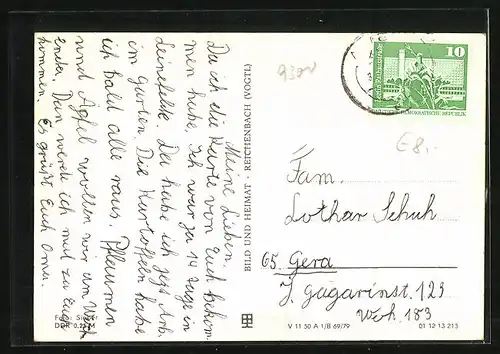 Meine Lieben.
Da ich die Karte von Euch bekom-
men habe. Ich war ja 14 Tage in
Da habe ich jetz Arb.
im Garten. Die Kartoffeln habe
ich bald alle raus. Pflaumen
und Äpfel wollen wir am Woch
enden. Dan werde ich mal zu Euch
kommen. Es grüßt Euch Oma.
Foto:
DDR 0,25 M
BILD UND HEIMAT · REICHENBACH (VOGTL)
V 11 50 A 1/B 69/79
01 12 13 213
9300
10
DEMOKRATISCHE REPUBLIK
€8,-
Fam.
Lothar Schuh
65. Gera
J. Gagarinst. 123
Woh 183